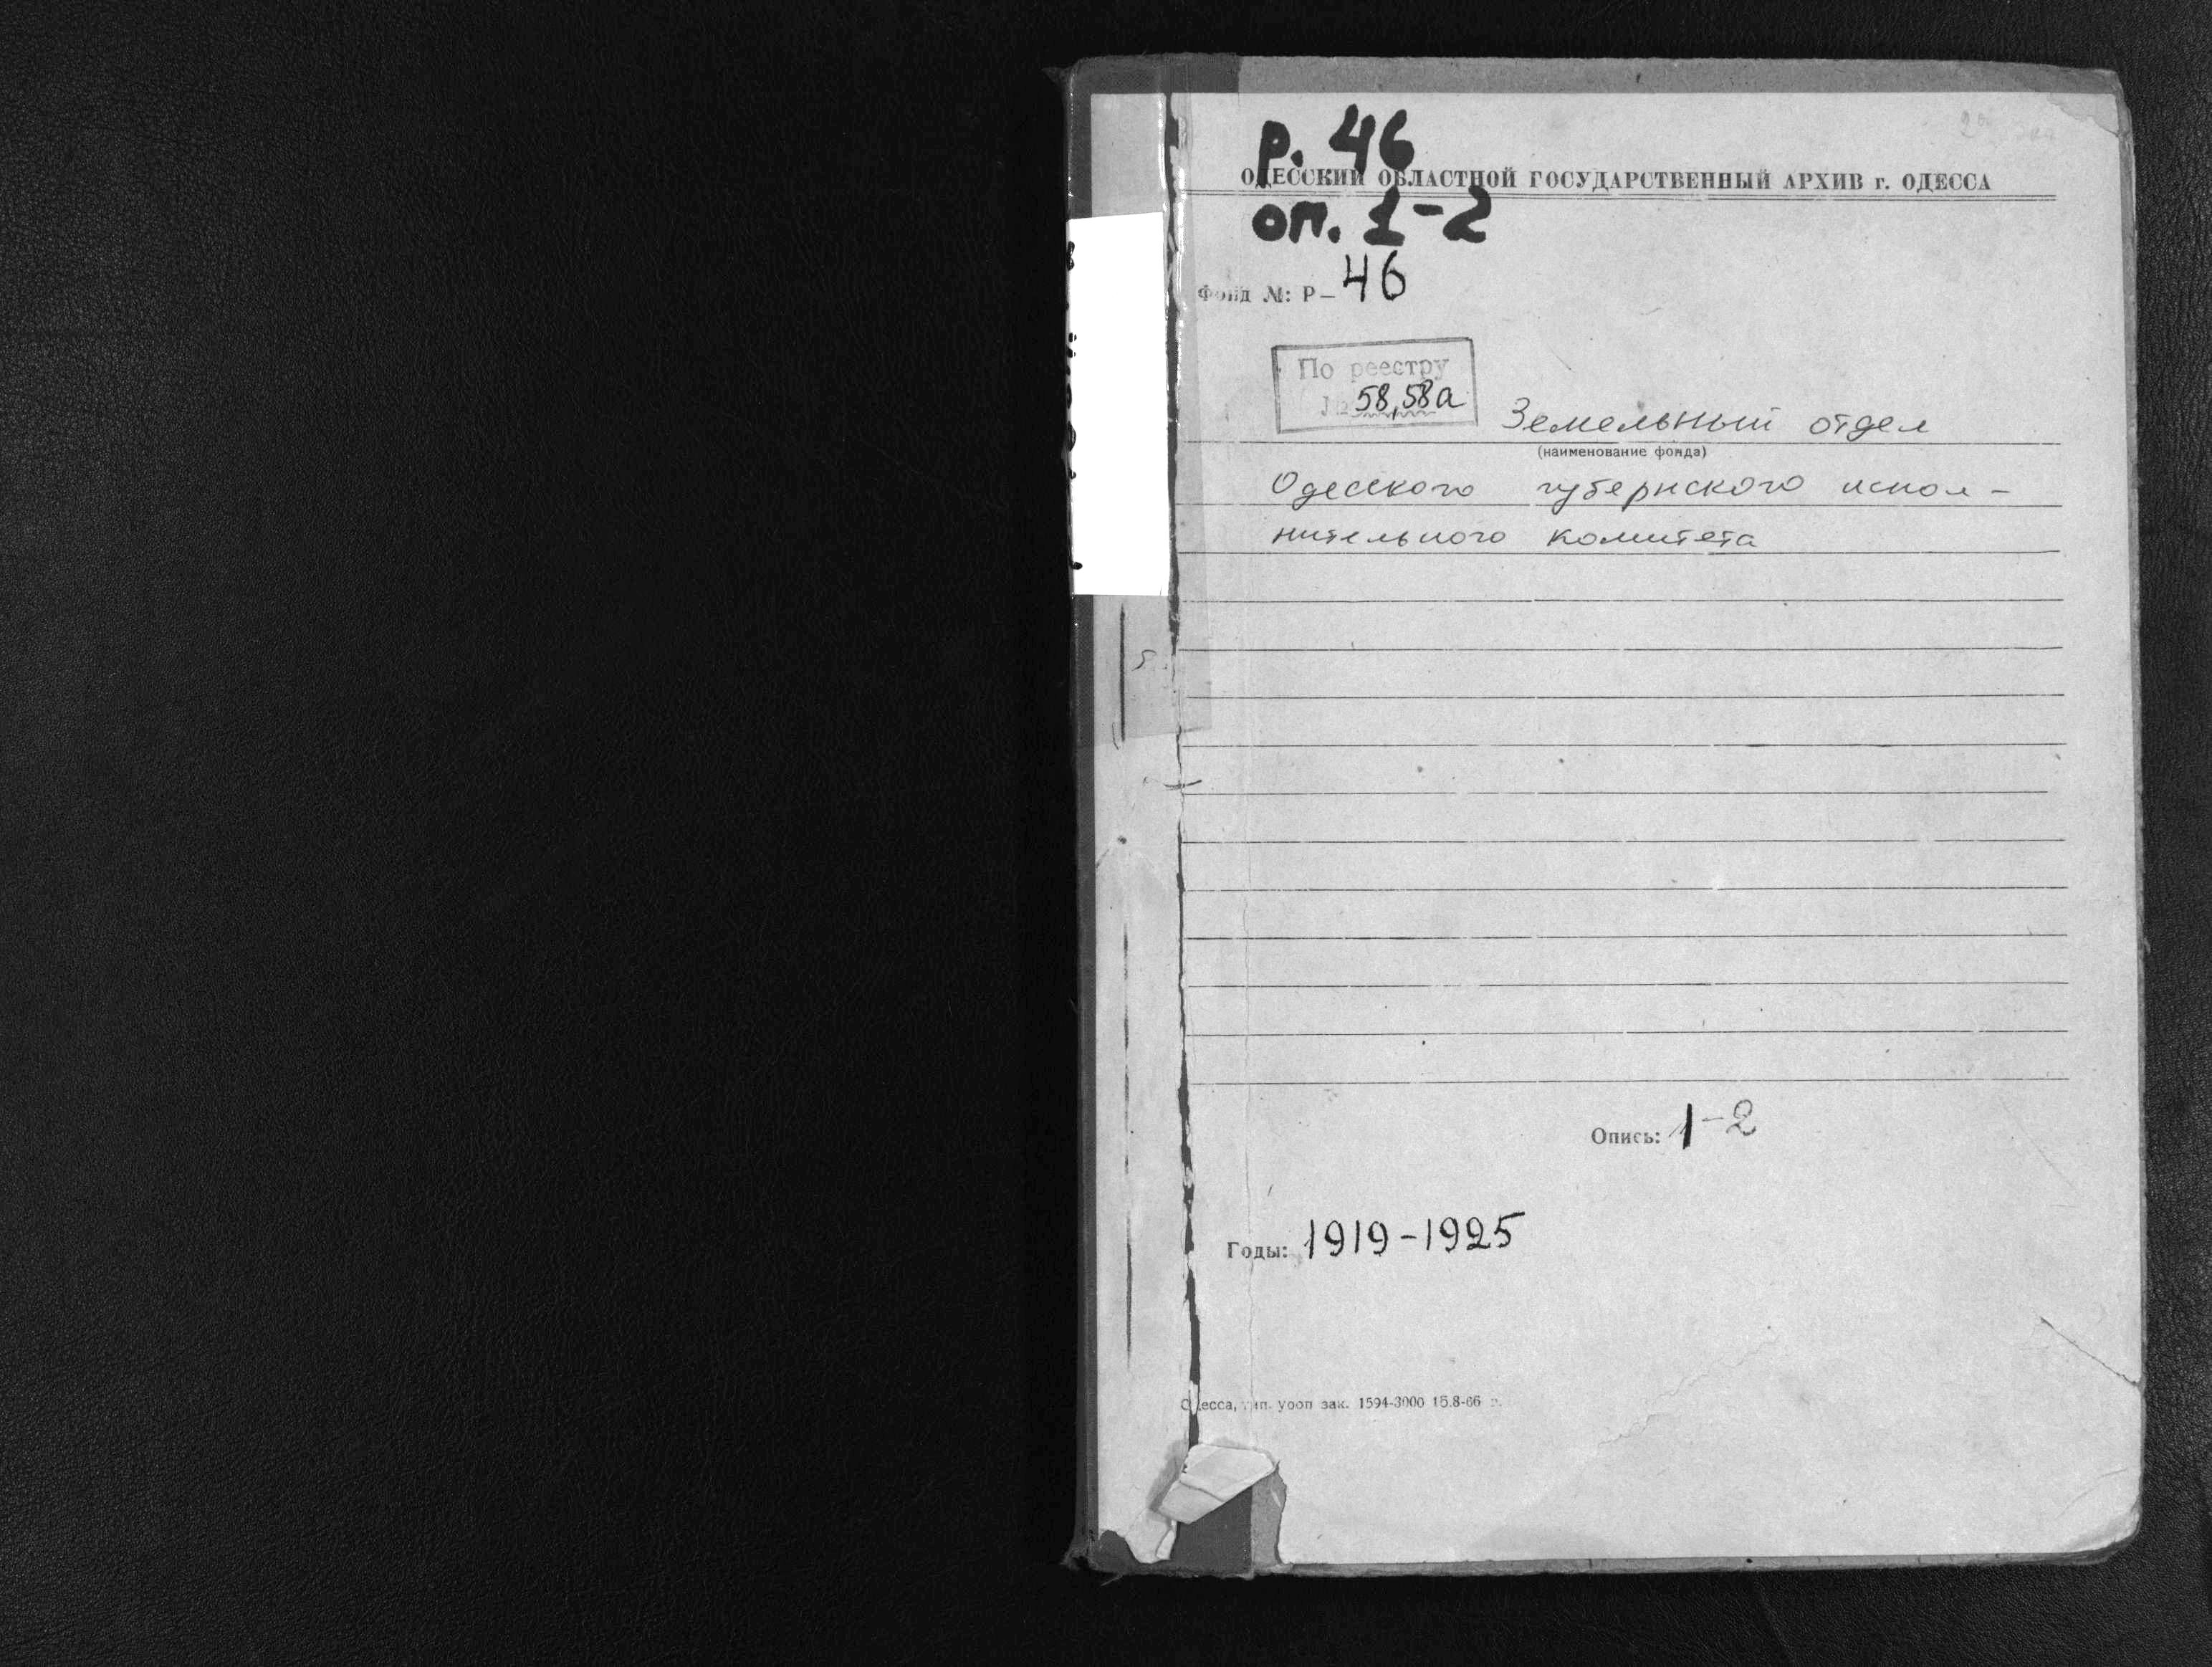 р. 46
ОДЕССКИЙ ОБЛАСТНОЙ ГОСУДАРСТВЕННЫЙ АРХИВ г. ОДЕССА
оп. 1-2
Фонд №: Р- 46
По реестру
№ 58, 58а
Земельный отдел
(наименование фонда)
Одесского губернского испол-
нительного комитета
Опись: 1-2
Годы: 1919-1925
Одесса, тип. уооп зак. 1594-3000 15.8-66 г.